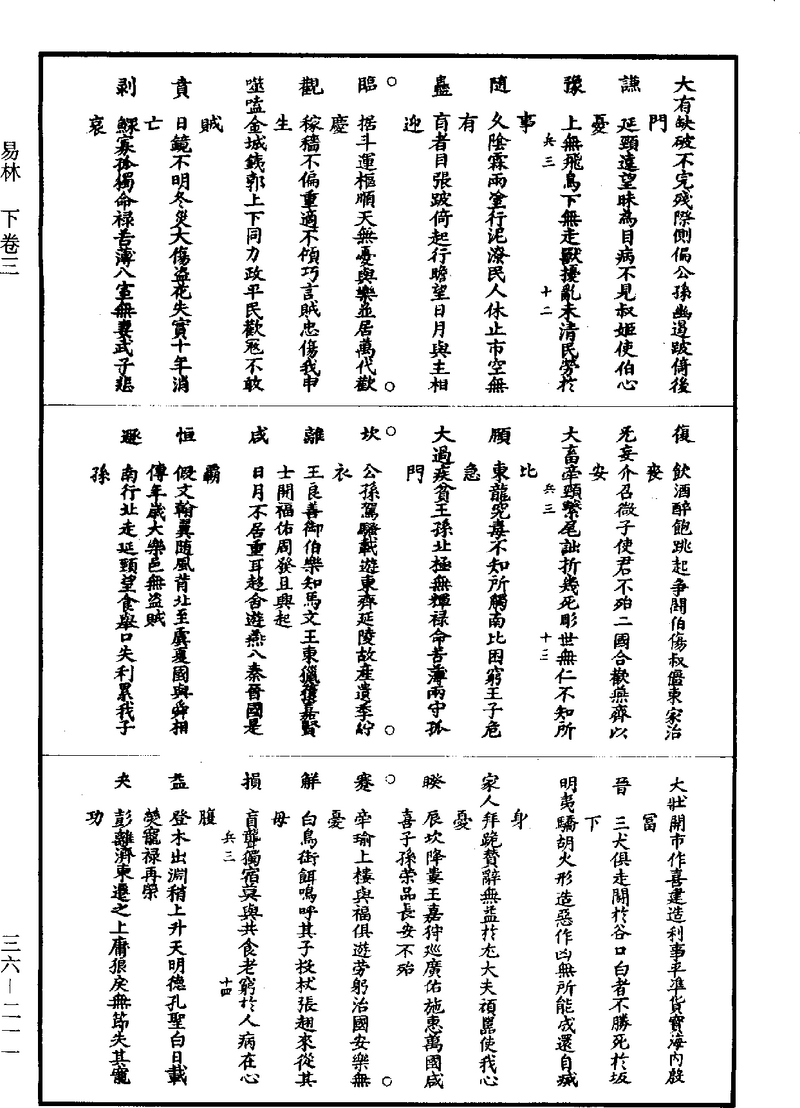 大有缺破不完殘隙側偏公孫幽遏跛倚後
門
謙 延頸遠望眛為目病不見叔姬使伯心
憂
豫 上無飛鳥下無走獸擾亂未清民勞於
兵三 十二
事
隨 久陰霖雨塗行泥潦民人休止市空無
有
蠱 盲者目張跛倚起行瞻望日月與主相
迎
臨 據斗運樞順天無憂與樂並居萬代歡
慶
觀 稼穡不偏重適不傾巧言賊忠傷我申
生
噬嗑金城鐵郭上下同力政平民歡冦不敢
賊
賁 日鏡不明冬災大傷盜花失實十年消
亡
剥 鰥寡孤獨命祿苦薄入室無妻武子悲
哀
復 飲酒醉飽跳起爭鬪伯傷叔僵東家治
喪
无妄介召微子使君不殆二國合歡燕齊以
安
大畜牽頸繫尾詘折幾死彫世無仁不知所
兵三 十三
比
頤 東龍究毒不知所觸南北困窮王子危
急
大過疾貧王孫北極無輝祿命苦薄兩守孤
門
坎 公孫駕驪載遊東齊延陵故產遺季紵
衣
離 王良善御伯樂知馬文王東獵獲嘉賢
士開福佑周發且興起
咸 日月不居重耳趍舍遊燕入秦晉國是
霸
恒 假文翰翼隨風背北至虞夏國與舜相
傳年歲大樂邑無盜賊
遯 南行北走延頸望食舉口失利累我子
孫
大壯開市作喜建造利事平準貨寶海內殷
富
晉 三犬俱走鬪於谷口白者不勝死於坂
下
明夷驕胡火形造惡作凶無所能成還自滅
身
家人拜跪贊辭無益於尤大夫頑嚚使我心
憂
睽 辰坎降婁王嘉狩巡廣佑施惠萬國咸
喜子孫榮品長安不殆
蹇 牽瑜上樓與福俱遊勞躬治國安樂無
憂
解 白鳥銜餌鳴呼其子投杖張翅來從其
母
損 盲聾獨宿莫與共食老窮於人病在心
兵三 十四
腹
益 登木出淵稍上升天明德孔聖白日載
熒寵祿再榮
夬 彭離濟東遷之上庸狼戾無節失其寵
功
易林 下卷三
三六—二一一